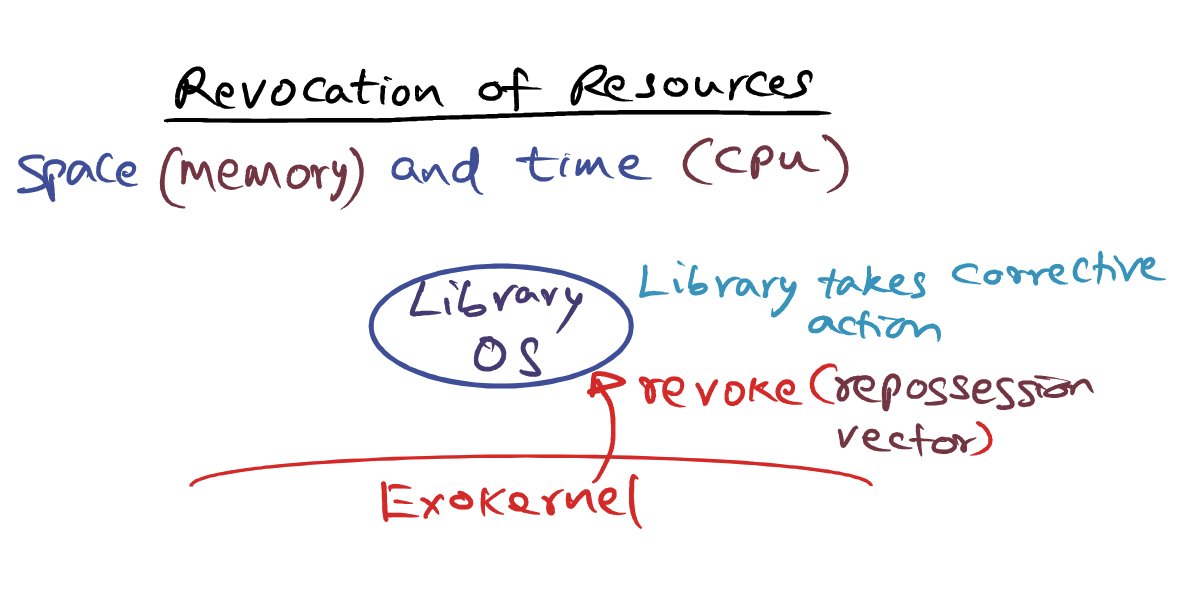 Revocation of Resources
Space (memory) and time (CPU)
Library
OS
Library takes corrective
action
revoke (repossession
vector)
Exokernel